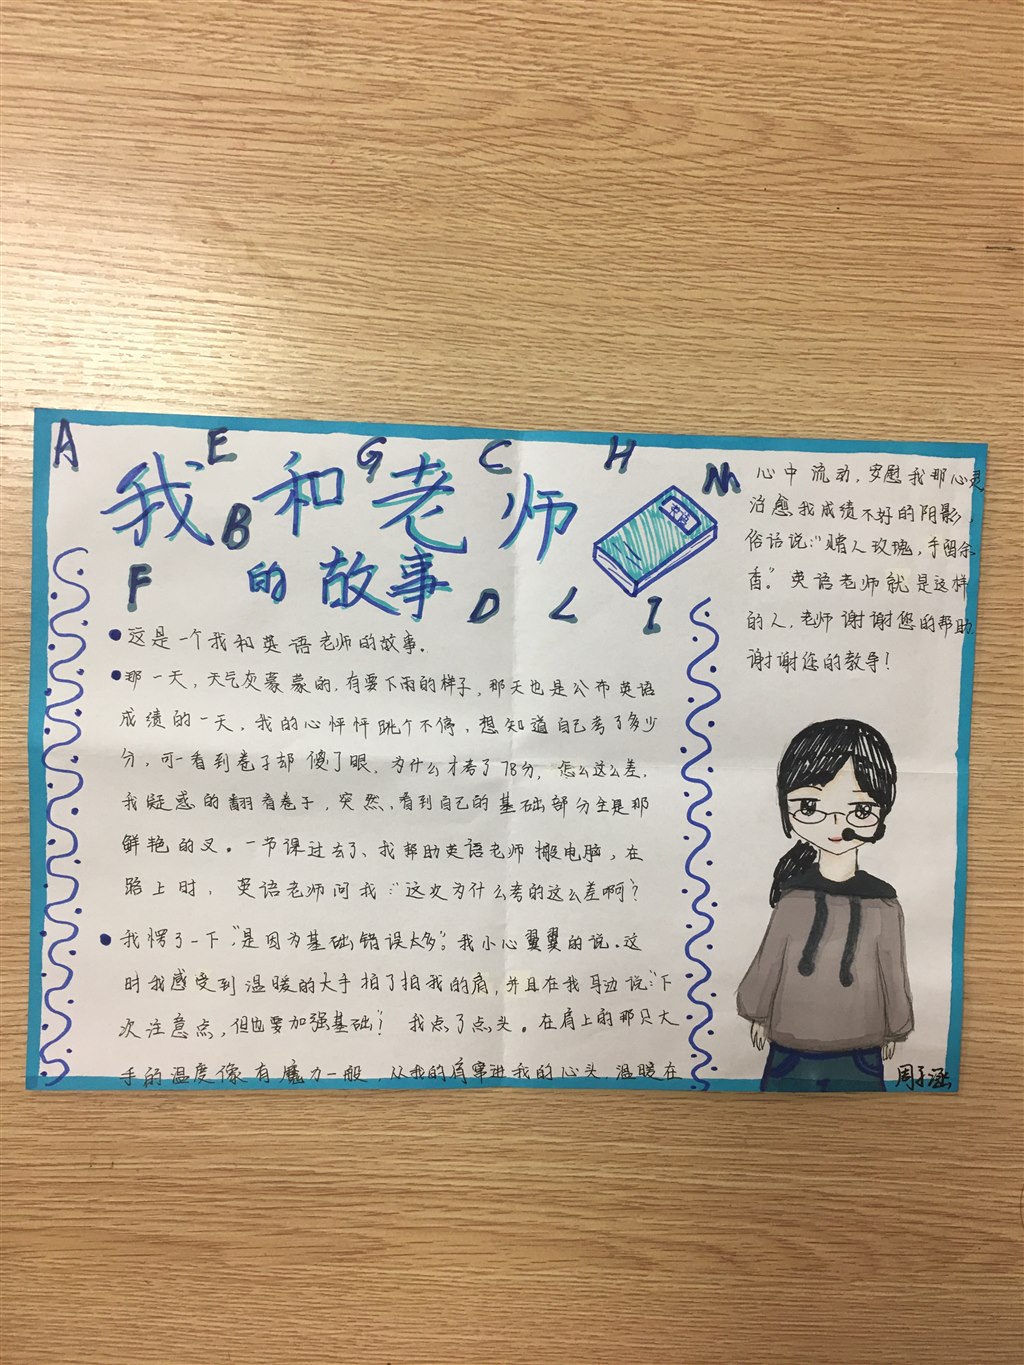 A E G C H
我和老师
B M
的故事
F D L I
英语
●这是一个我和英语老师的故事.
●那一天,天气灰蒙蒙的,有要下雨的样子,那天也是公布英语
成绩的一天,我的心怦怦跳个不停,想知道自己考了多少
分,可一看到卷子却傻了眼,为什么才考了78分,怎么这么差.
我疑惑的翻看卷子,突然,看到自己的基础部分全是那
鲜艳的叉。一节课过去了、我帮助英语老师搬电脑,在
路上时,英语老师问我:“这次为什么考的这么差啊?
●我愣了一下,“是因为基础错误太多”,我小心翼翼的说.这
时我感受到温暖的大手拍了拍我的肩,并且在我耳边说:“下
次注意点,但也要加强基础?我点了点头。在肩上的那只大
手的温度像有魔力一般,从我的肩窜进我的心头,温暖在
心中流动,安慰我那心灵
治愈我成绩不好的阴影,
俗话说:“赠人玫瑰,手留余
香。”英语老师就是这样
的人,老师谢谢您的帮助
谢谢您的教导!
周子涵